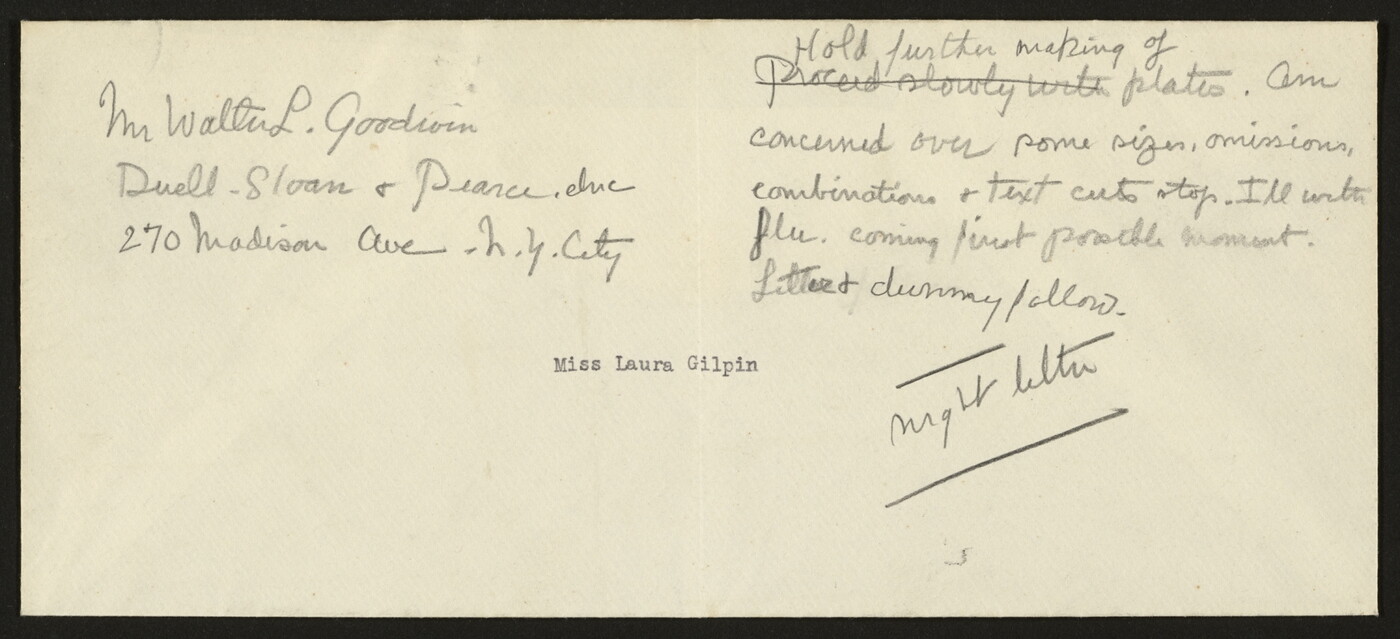 Mr Walter L. Goodwin
Duell-Sloan & Pearce, Inc
270 Madison Ave - N.Y. City
Miss Laura Gilpin
Hold further making of
Proceed slowly with plates. Am
concerned over some sizes, omissions,
combinations & text cuts stop. Ill with
flu. coming first possible moment.
Letter & dummy follow.
night letter